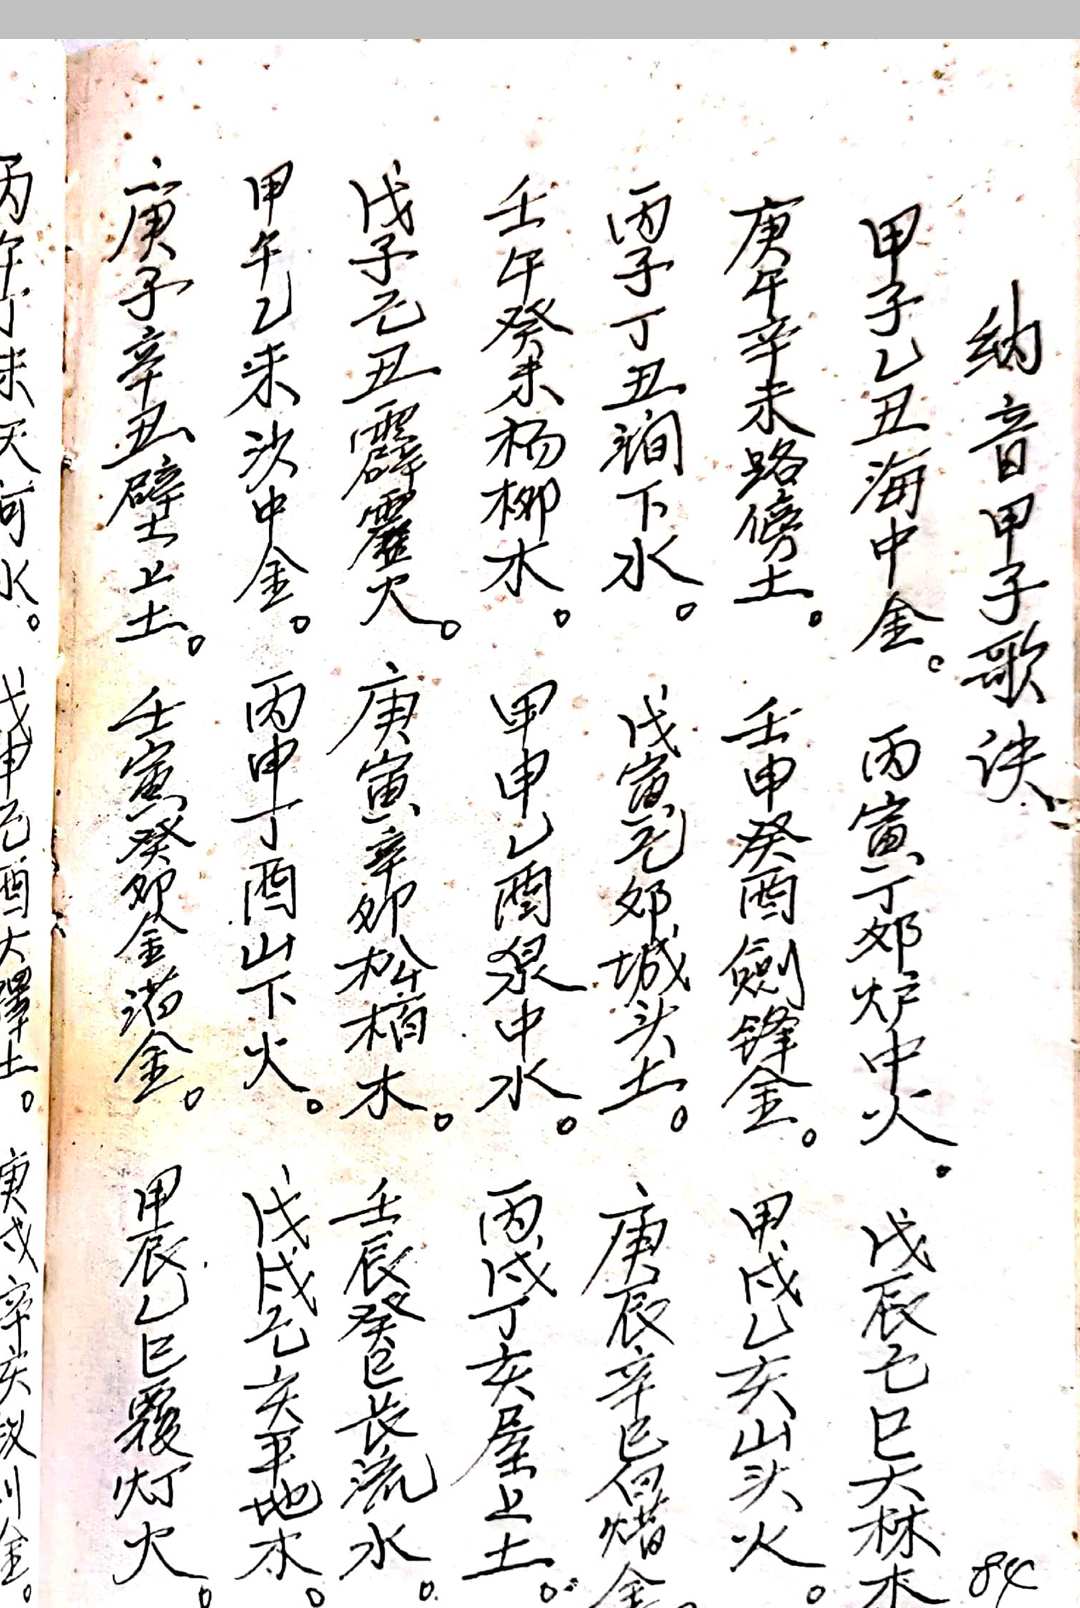 纳音甲子歌诀
甲子乙丑海中金。丙寅丁卯炉中火。戊辰己巳大林木
庚午辛未路傍土。壬申癸酉劍锋金。甲戌乙亥山头火。
丙子丁丑涧下水。戊寅己卯城头土。庚辰辛巳白蜡金。
壬午癸未杨柳木。甲申乙酉泉中水。丙戌丁亥屋上土。
戊子己丑霹靂火。庚寅辛卯松柏木。壬辰癸巳长流水。
甲午乙未沙中金。丙申丁酉山下火。戊戌己亥平地木。
庚子辛丑壁上土。壬寅癸卯金箔金。甲辰乙巳覆灯火。
丙午丁未天河水。戊申己酉大驛土。庚戌辛亥釵川金。
84